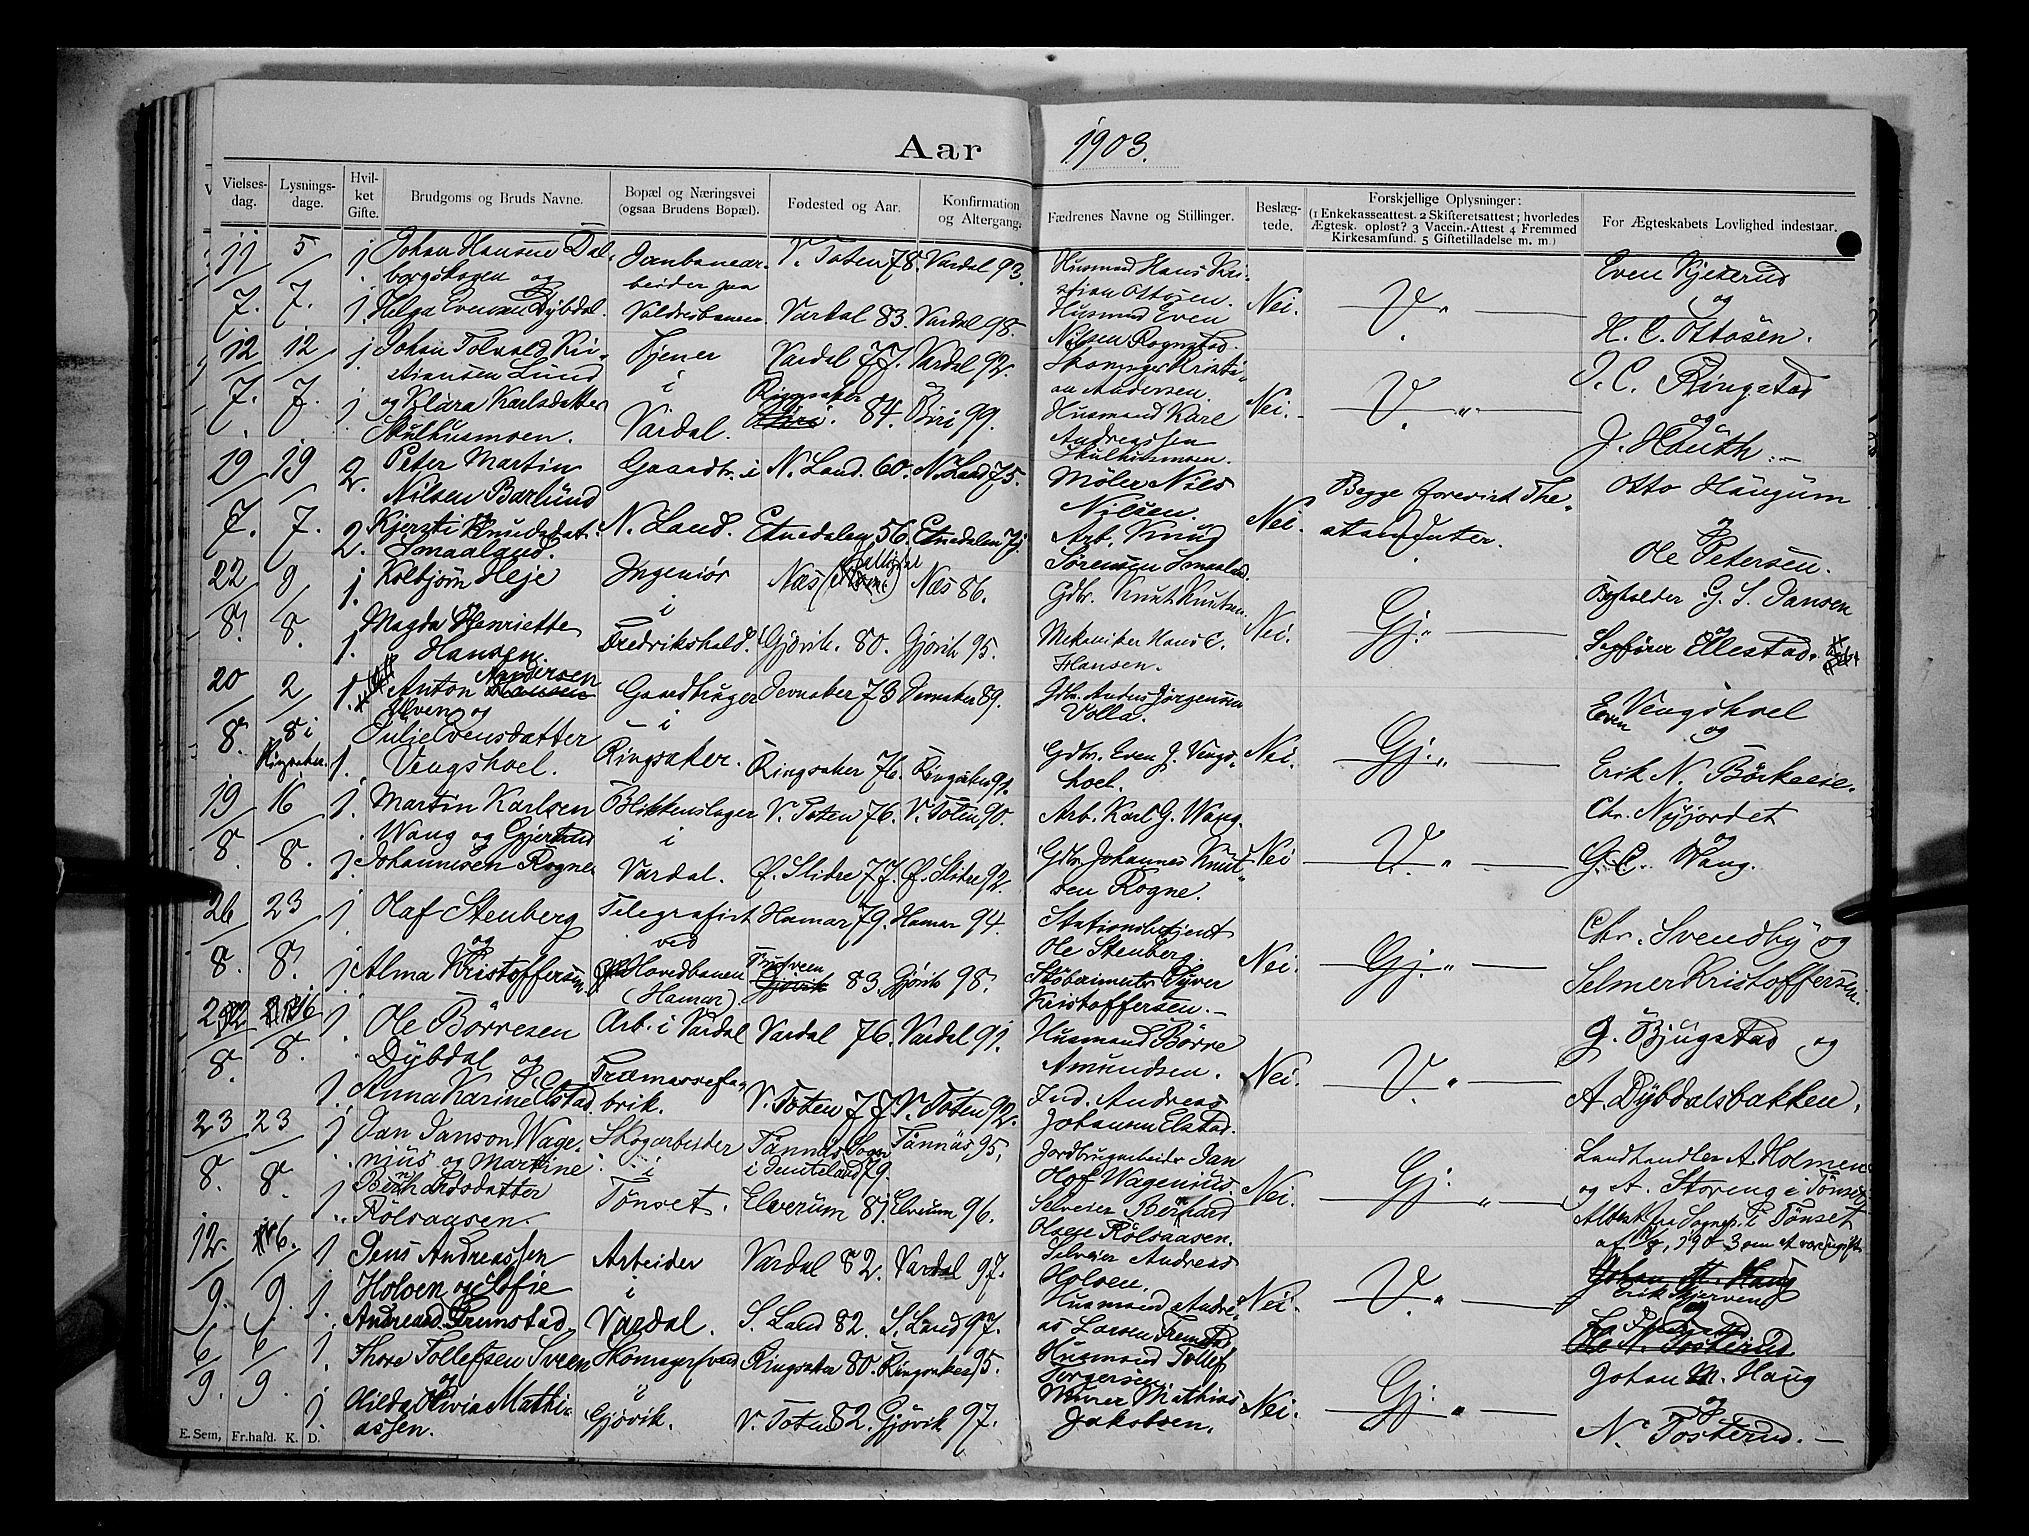 Aar 1903.
Vielses-dag. Lysnings-dage. Hvil-ket Gifte. Brudgoms og Bruds Navne. Bopæl og Næringsvei (ogsaa Brudens Bopæl). Fødested og Aar. Konfirmation og Altergang. Fædrenes Navne og Stillinger. Beslæg-tede. Forskjellige Oplysninger: (1 Enkekasseattest. 2 Skifteretsattest; hvorledes Ægtesk. opløst? 3 Vaccin.-Attest 4 Fremmed Kirkesamfund. 5 Giftetilladelse m. m.) For Ægteskabets Lovlighed indestaar.
11/7. 5/7. 1. Johan Hansen Dal-
borgskogen og
1. Helga Evensen Dybdal.
Jernbanear-
beider paa
Valdresbanen
V. Toten 78. Vardal 93.
Vardal 83. Vardal 98.
Husmand Hans Kri-
stian Ottosen.
Husmand Even
Nilsen Rognstad.
Nei. V. "
Even Kjekerud
og
H. C. Ottosen.
12/7. 12/7. 1. Johan Tolvald Kri-
stiansen Lund
1. og Klara Karlsdatter
Skulhusmoen.
Tjener
i
Vardal.
Vardal 77. Vardal 92.
Ringsaker
Biri. 84. Biri 99.
Skomager Kristi-
an Andersen.
Husmand Karl
Andreassen
Skulhusmoen.
Nei. V. "
O. C. Ringstad
og
J. Hauth.
19/7. 19/7. 2. Peter Martin
Nilsen Barlund
2. Kjersti Knudsdat.
Smaaland.
Gaardbr. i
N. Land.
N. Land. 60. N. Land 75.
Etnedalen 56. Etnedalen 71.
Møler Nils
Nilsen.
Arb. Knud
Sørensen Smaaland.
Nei.
Begge forevist The-
Otto Haugum
og
Ole Petersen.
22/8. 9/8. 1. Kolbjørn Heje
1. Magda Henriette
Hansen.
Ingeniør
i
Fredrikshald.
Næs Næs 86.
Gjøvik. 80. Gjøvik 95.
Gdbr. Knut Knutsen.
Mekaniker Hans C.
Hansen.
Nei. Gj. "
G. S. Jansen
og
Sagfører Ellestad.
20/8. 2/8 i Ringsaker. 1. Anton Hansen Andersen
Ulven og
Julie Evensdatter
1. Vengshoel.
Gaardbruger
i
Ringsaker.
Jevnaker 73 Jevnaker 89.
Ringsaker 76. Ringsaker 91.
Gdbr. Anders Jørgensen
Volla.
Gdbr. Even J. Vengs-
hoel.
Nei. Gj. "
Even Vengshoel
og
Erik N. Börkeeie.
19/8. 16/8. 1. Martin Karlsen
Wang og Gjertrud
1. Johannesen Rogne
Blikkenslager
i
Vardal.
V. Toten 76. V. Toten 90.
Ø. Slidre 77. Ø. Slidre 92.
Arb. Karl G. Wang.
Gdbr. Johannes Knut-
sen Rogne.
Nei V. "
Chr. Nyjordet
og
G. C. Wang.
26/8. 23/8. 1. Olaf Stenberg
og
1. Alma Kristoffersen.
Telegrafist
ved
Hovedbanen
(Hamar).
Hamar 79. Hamar 94.
Gjøvik 83. Gjøvik 98.
Stationsbetjent
Ole Stenberg.
Kristoffersen.
Nei. Gj. "
Chr. Svendby og
Selmer Kristoffersen.
22/8. 16/8. 1. Ole Börresen
Dybdal og
1. Anna Karine Elstad.
Arb. i Vardal
Træmassefa-
brik.
Vardal 76. Vardal 91.
V. Toten 77. V. Toten 92.
Husmand Börre
Amundsen.
Ind. Andreas
Johansen Elstad.
Nei. V. "
G. Bjugstad og
A. Dybdalsbakken.
23/8. 23/8. 1. Jan Janson Wage-
nius og Martine
1. Berhardsdatter
Rölsaasen.
Skogarbeider
i
Tønset.
Tännäs Sogn Tännäs 95.
i Jemteland 79.
Elverum 81. Elverum 96.
Jordbrugarbeider Jan
Hof Wagenius.
Selveier Berhard
Olsen Rölsaasen.
Nei. Gj. "
Landhandler A. Holmen
og A. Storeng i Tönset
Attest fra Sognep. i Tönset
12/9. 6/9. 1. Jens Andreassen
Holven og Sofie
1. Andread. Grimstad.
Arbeider
i
Vardal.
Vardal 82. Vardal 97.
S. Land 82. S. Land 97.
Selveier Andreas
Holven.
Husmand Andre-
as Larsen
Nei. V. "
Johan M. Haug
Erik Skjerven
og
Ole N. Tosterud
6/9. 6/9. 1. Thore Tollefsen Sveen
og
1. Hilda Olivia Mathi-
assen.
Skomagersvend
i
Gjøvik.
Ringsaker 80. Ringsaker 95.
V. Toten 82. Gjøvik 97.
Husmand Tollef
Torgersen.
Murer Mathias
Jakobsen.
Nei. Gj. "
Johan M. Haug
og
N. Tosterud.
E. Sem, Fr.hald. K. D.